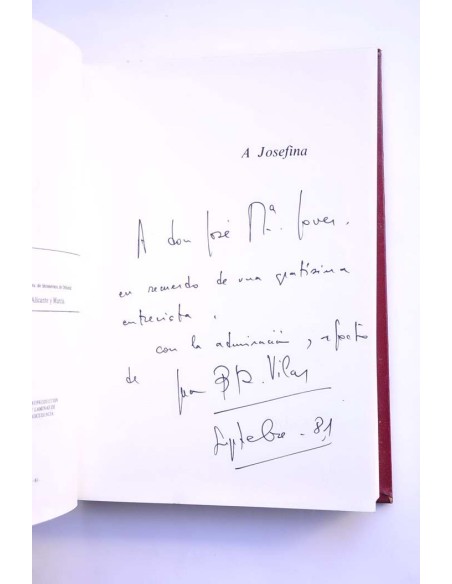 A Josefina
A don José Mª. Jover.
en recuerdo de una gratísima
entrevista.
con la admiración, y afecto
de Juan Bta. Vilar
Septebre - 81
Alicante y Murcia.